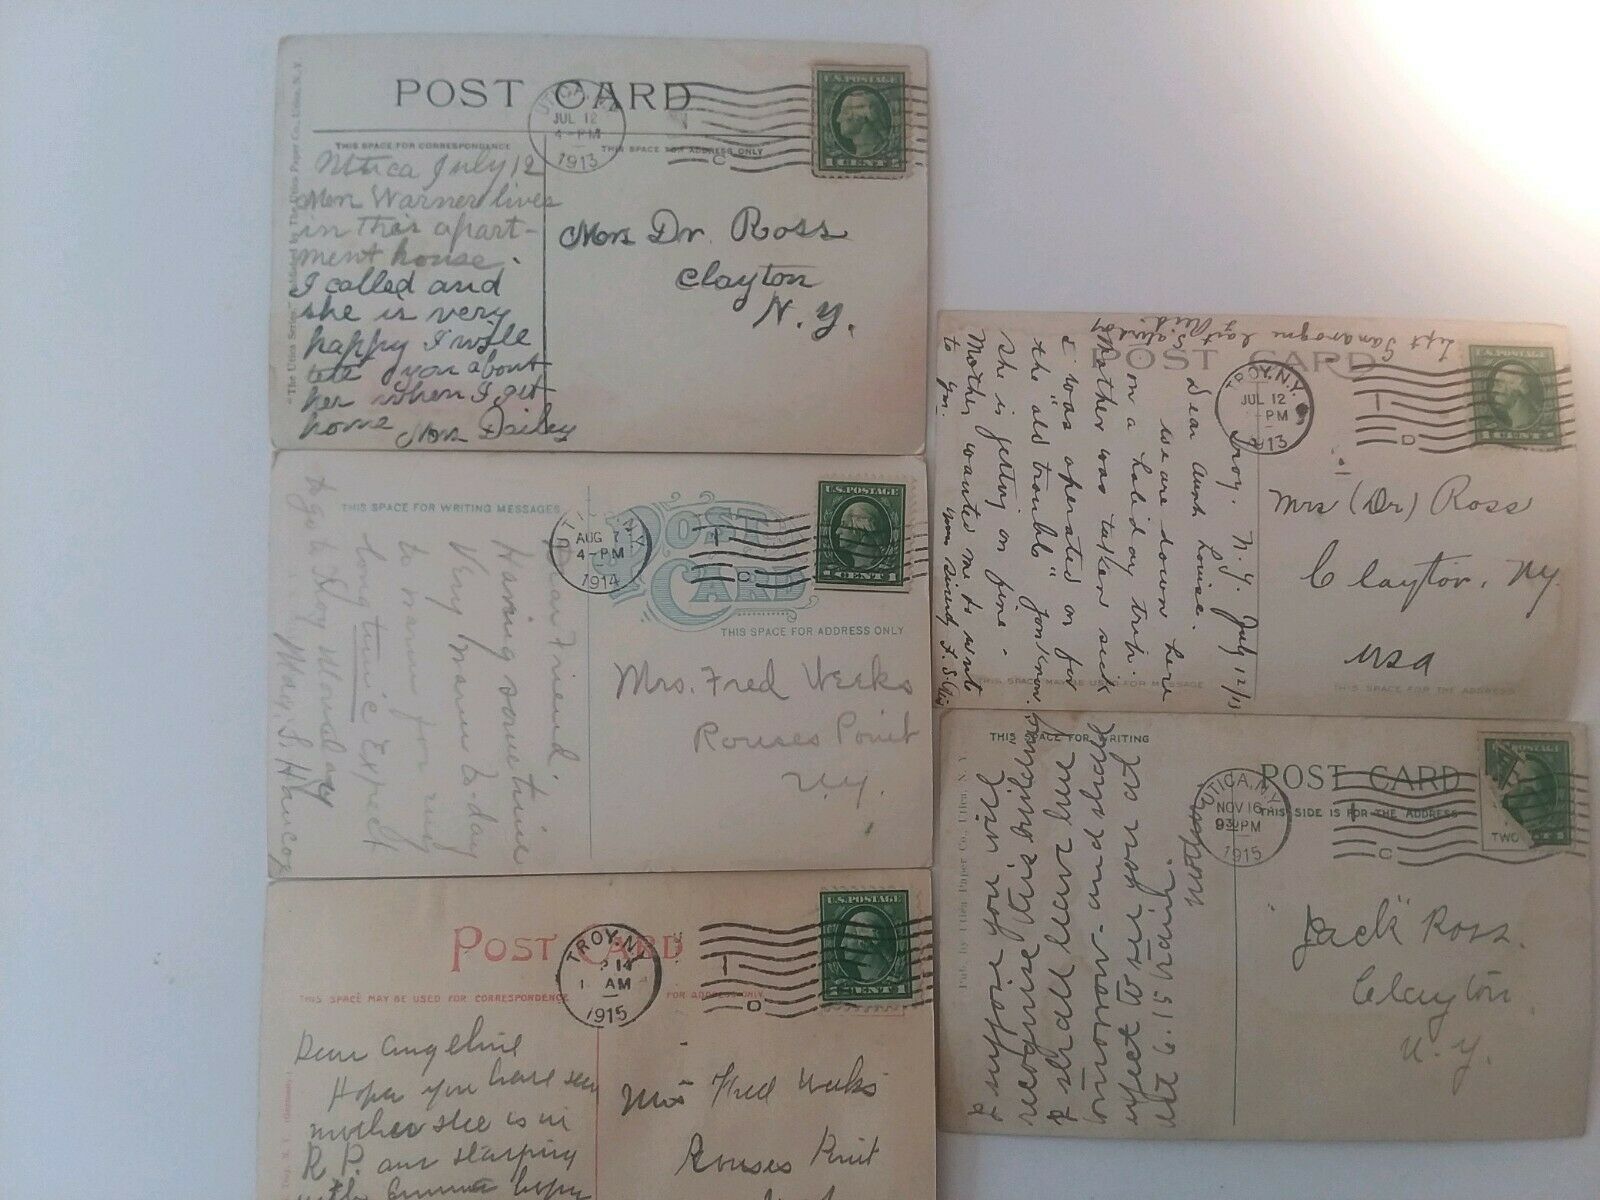 POST CARD
UTICA, N.Y.
JUL 12
4-PM
1913
C
U.S. POSTAGE
1 CENT 1
THIS SPACE FOR CORRESPONDENCE
THIS SPACE FOR ADDRESS ONLY
"The Utica Series" Published by The Utica Paper Co., Utica, N.Y.
Utica July 12
Mrs Warner lives
in this apart-
ment house.
I called and
she is very
happy I will
tell you about
her when I get
home Mrs Dailey
Mrs Dr. Ross
Clayton
N.Y.
POST CARD
TROY, N.Y.
JUL 12
-PM
1913
D
U.S. POSTAGE
1 CENT 1
Left Gananoque last Saturday
Troy. N.Y. July 12/13
Dear Aunt Louise.
we are down here
on a holiday trip.
Father was taken sick
& was operated on for
the "old trouble" you know.
She is getting on fine -
Mother wanted me to write
to you.
Yours Sincerely
THIS SPACE MAY BE USED FOR MESSAGE
THIS SPACE FOR THE ADDRESS
Mrs (Dr) Ross
Clayton, NY.
USA
THIS SPACE FOR WRITING MESSAGES
POST CARD
N.Y.
AUG 7
4-PM
1914
C
U.S. POSTAGE
1 CENT 1
THIS SPACE FOR ADDRESS ONLY
Dear Friend
Having some time
Very warm to-day
to warm for any
long time Expect
to go to Troy Monday
May. S. Hancox
Mrs. Fred Weeks
Rouses Point
N.Y.
THIS SPACE FOR WRITING
POST CARD
THIS SIDE IS FOR THE ADDRESS
UTICA, N.Y.
NOV 16
930PM
1915
C
POSTAGE
TWO
Pub. by Utica Paper Co., Utica, N.Y.
I suppose you will
recognise this building
I shall leave here
tomorrow - and shall
expect to see you at
the 6.15 train.
Mother
"Jack" Ross.
Clayton
N.Y.
POST CARD
TROY, N.Y.
14
AM
1915
D
U.S. POSTAGE
1 CENT 1
THIS SPACE MAY BE USED FOR CORRESPONDENCE
FOR ADDRESS ONLY
Dear Angeline
Hope you have seen
mother she is in
R. P. are stopping
with Emma hope
Mrs Fred Weeks
Rouses Point